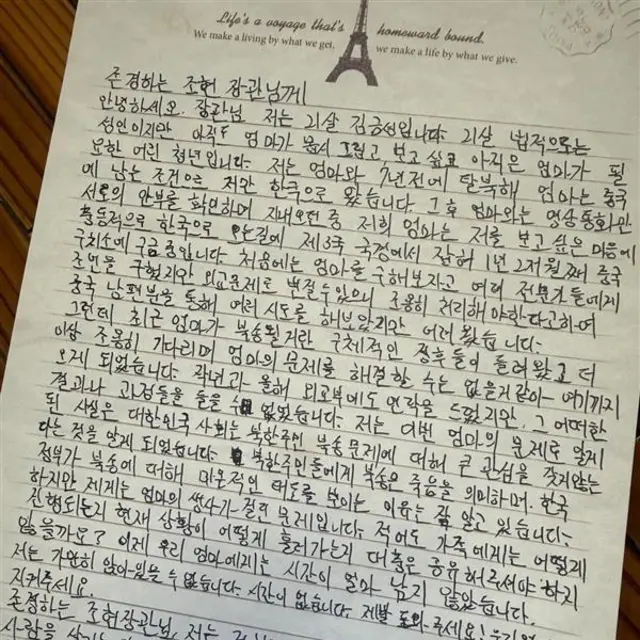 Life's a voyage that's homeward bound.
We make a living by what we get, we make a life by what we give.
존경하는 조현 장관님께
안녕하세요. 장관님 저는 21살 김금성입니다. 21살 법적으로는
성인이지만 아직도 엄마가 몹시 그립고, 보고 싶고 아직은 엄마가 필
요한 어린 청년입니다. 저는 엄마와 7년전에 탈북해 엄마는 중국
에 남는 조건으로 저만 한국으로 왔습니다. 그 후 엄마와는 영상통화만
서로의 안부를 확인하며 지내오던 중 저희 엄마는 저를 보고 싶은 마음에
충동적으로 한국으로 오는길에 제3국 국경에서 잡혀 1년 2개월째 중국
구치소에 구금중입니다. 처음에는 엄마를 구해보자고 여러 전문가들에게
조언을 구했지만 외교문제로 번질수있으니 조용히 처리해야한다고하여
중국 남편분을 통해 여러 시도를 해보았지만 어려웠습니다.
그런데 최근 엄마가 북송될거란 구체적인 정후들이 들려왔고 더
이상 조용히 기다리며 엄마의 문제를 해결할 수는 없을거같아 여기까지
오게 되었습니다. 작년과 올해 외교부에도 연락을 드렸지만, 그 어떠한
결과나 과정들을 들을 수 없었습니다. 저는 이번 엄마의 문제로 알게
된 사실은 대한민국 사회는 북한주민 북송문제에 대해 큰 관심을 갖지않는
다는 것을 알게 되었습니다. 북한주민들에게 북송은 죽음을 의미하며, 한국
정부가 북송에 대해 미온적인 태도를 보이는 이유는 잘 알고 있습니다.
하지만 제게는 엄마의 생사가 걸린 문제입니다. 적어도 가족에게는 어떻게
진행되는지 현재 상황이 어떻게 흘러가는지 대충은 공유해주셔야 하지
않을까요? 이제 우리 엄마에게는 시간이 얼마 남지 않았습니다.
저는 가만히 앉아있을 수 없습니다. 시간이 없습니다. 제발 도와주세요!
지켜주세요.
존경하는 조현장관님, 저는
사람을